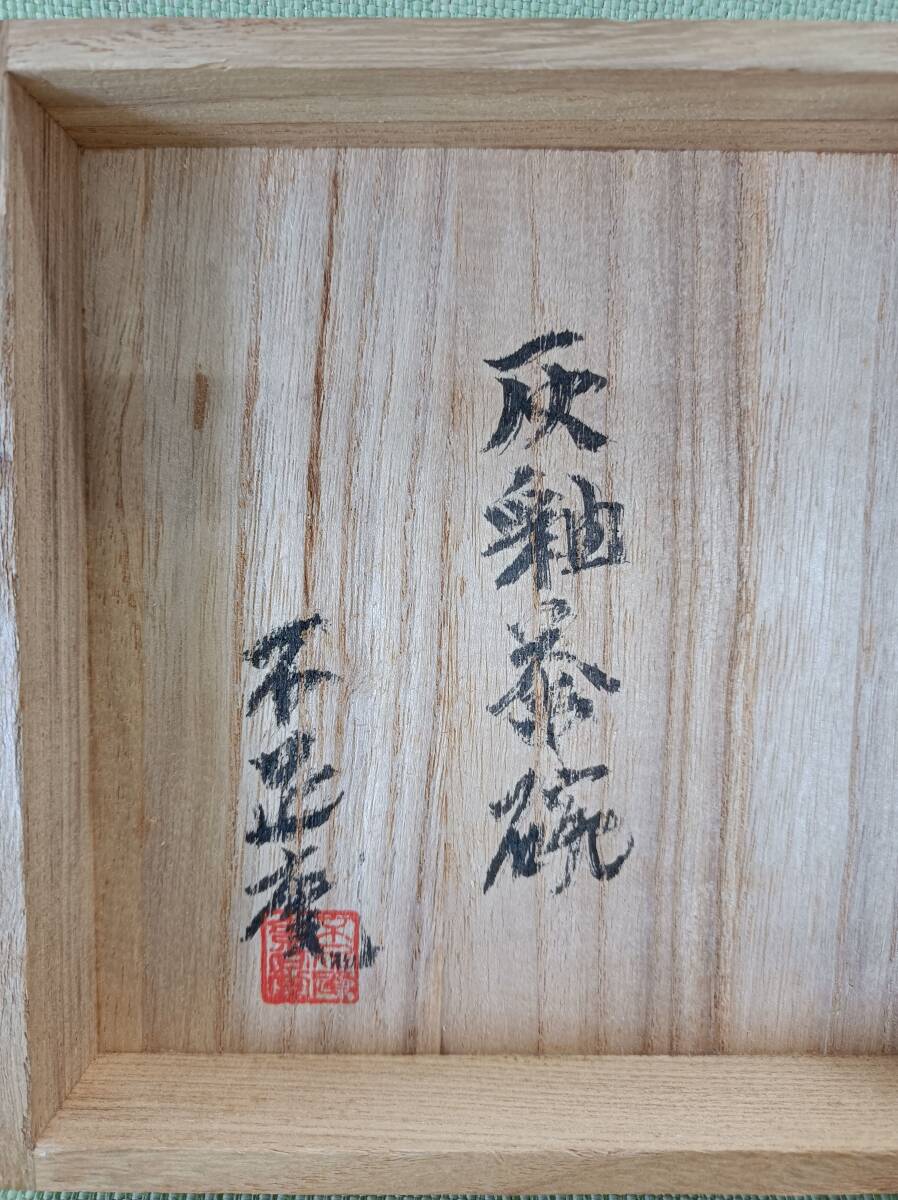 灰釉茶碗
不 庵